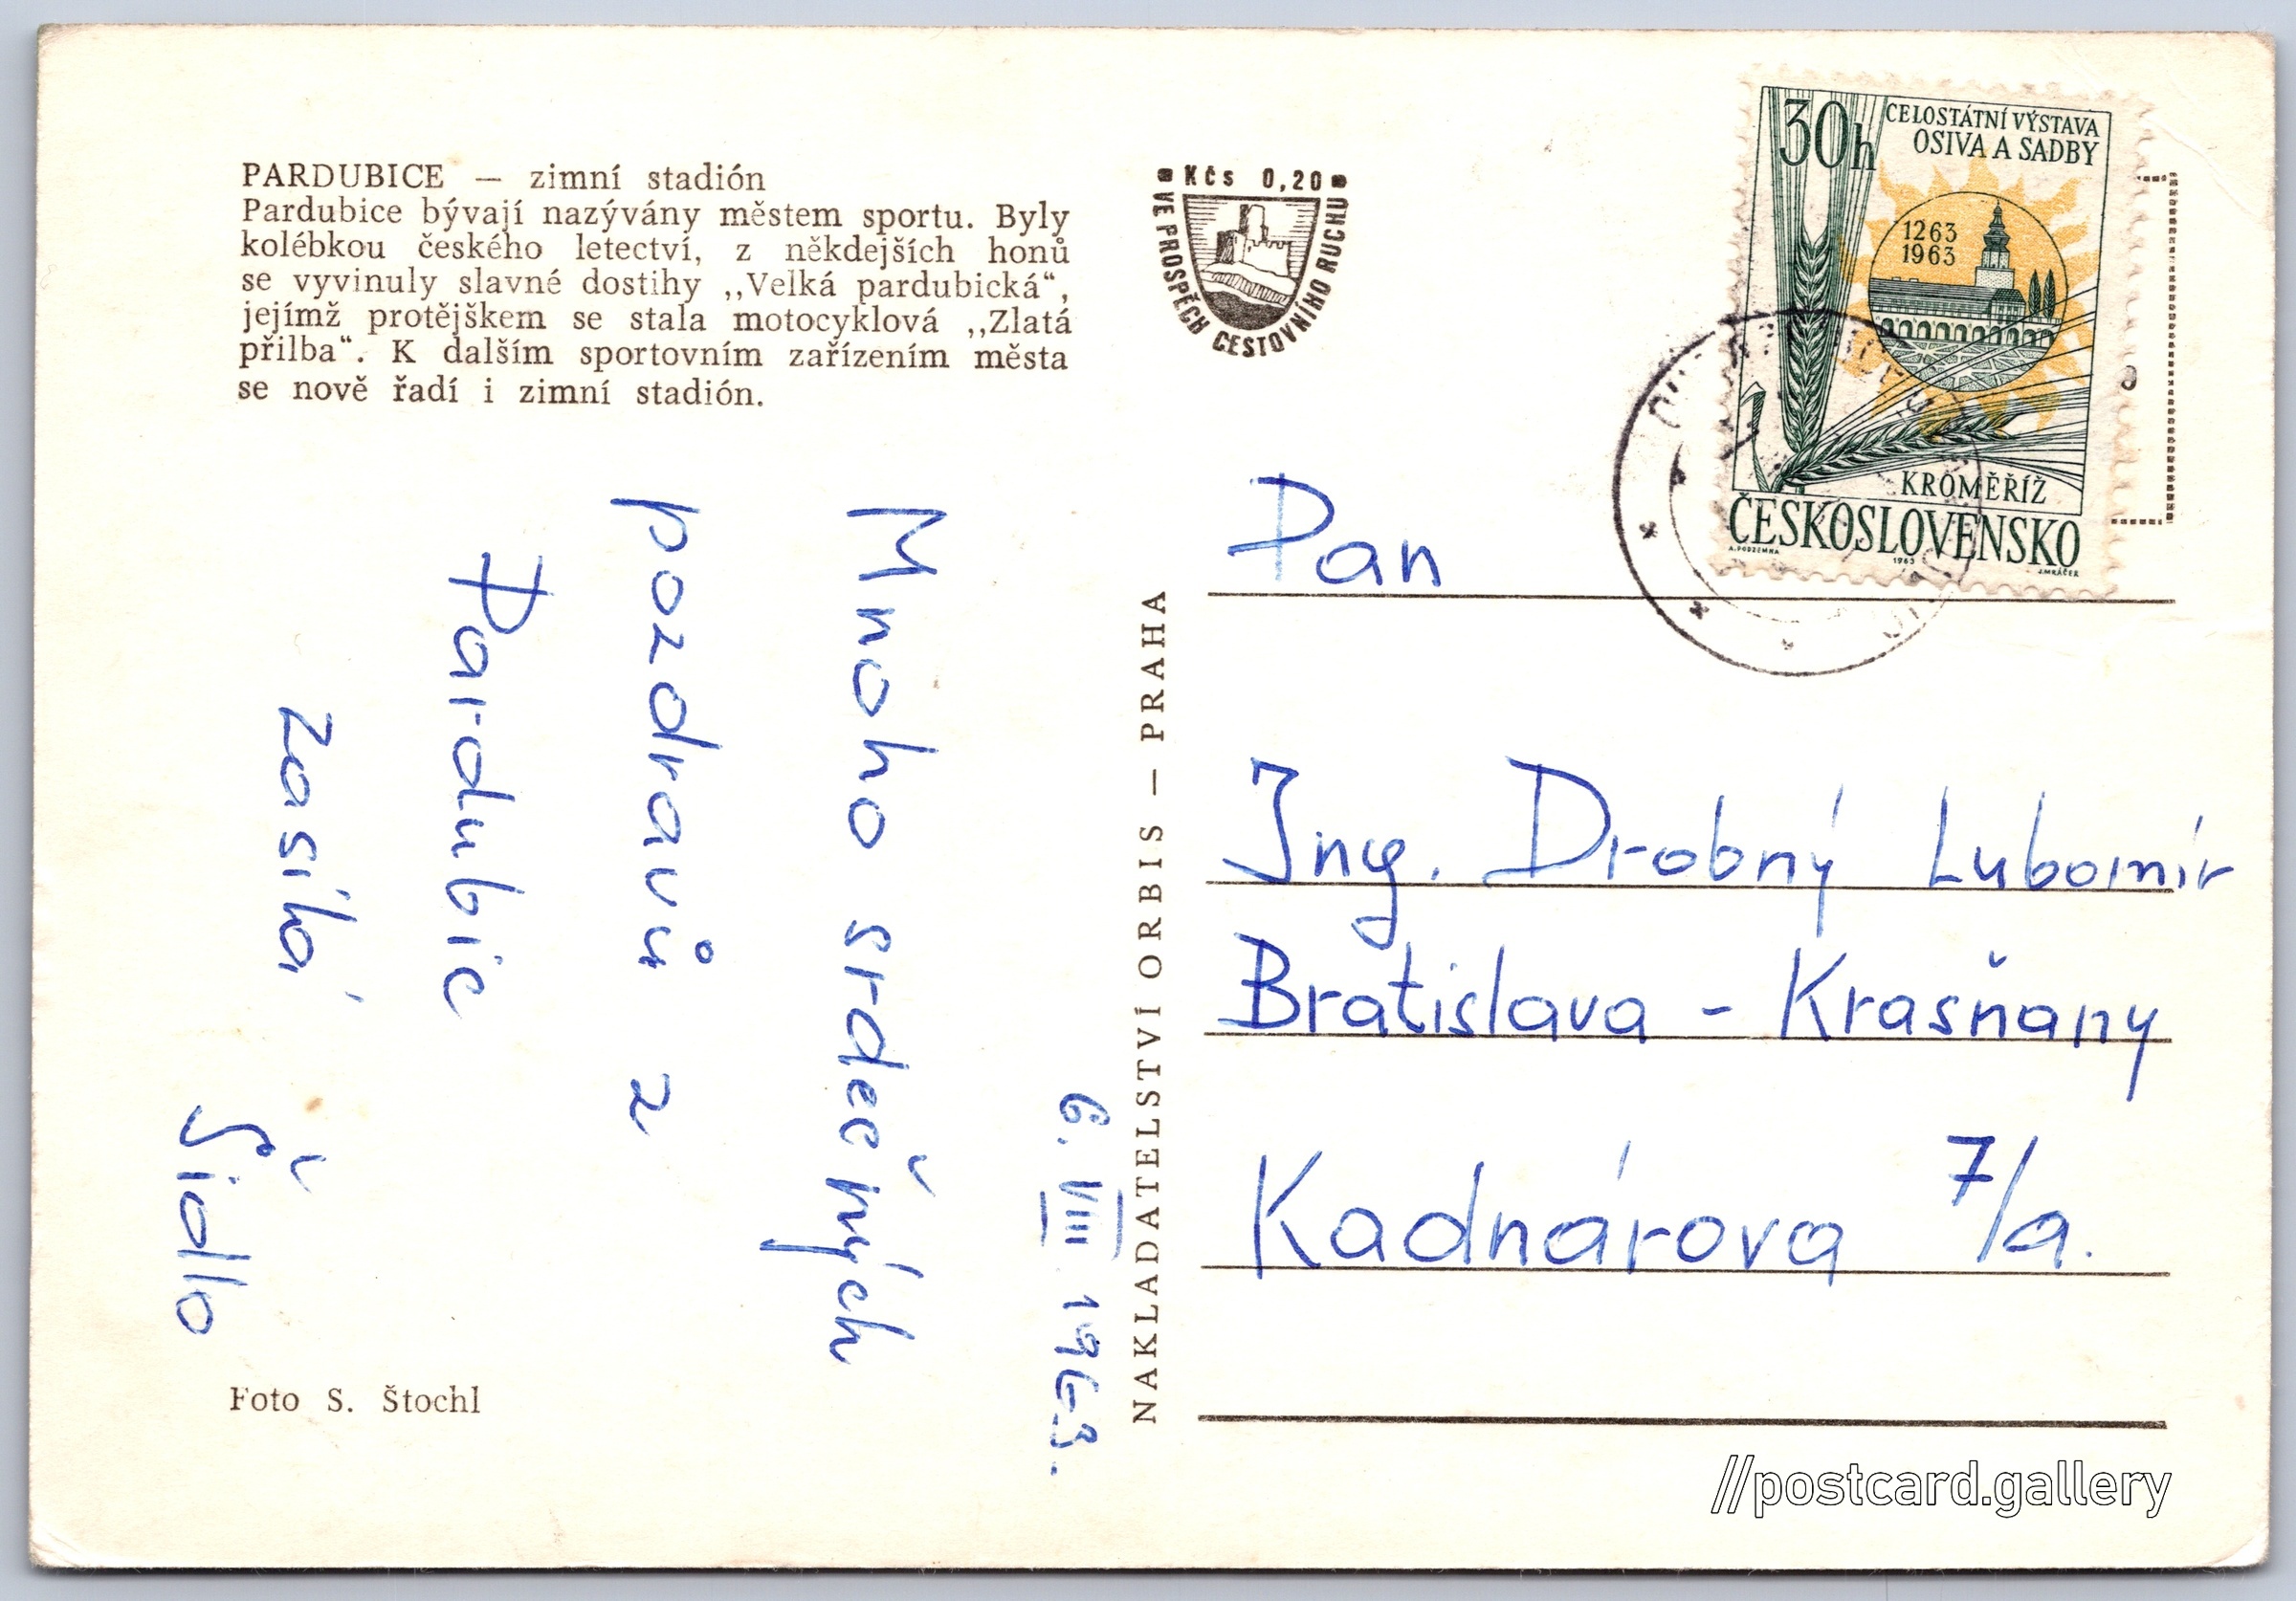 PARDUBICE — zimní stadión
Pardubice bývají nazývány městem sportu. Byly
kolébkou českého letectví, z někdejších honů
se vyvinuly slavné dostihy ,,Velká pardubická“,
jejímž protějškem se stala motocyklová ,,Zlatá
přilba“. K dalším sportovním zařízením města
se nově řadí i zimní stadión.
Kčs 0,20
VE PROSPĚCH CESTOVNÍHO RUCHU
30h
CELOSTÁTNÍ VÝSTAVA
OSIVA A SADBY
1263
1963
KROMĚŘÍŽ
ČESKOSLOVENSKO
A. PODZEMNA 1963 J. MRÁČEK
6. VIII 1963.
Mnoho srdečných
pozdravů z
Pardubic
zasílá
Šidlo
Foto S. Štochl
NAKLADATELSTVÍ ORBIS — PRAHA
Pan
Ing. Drobný Lubomír
Bratislava - Krasňany
Kadnárova 7/a.
//postcard.gallery